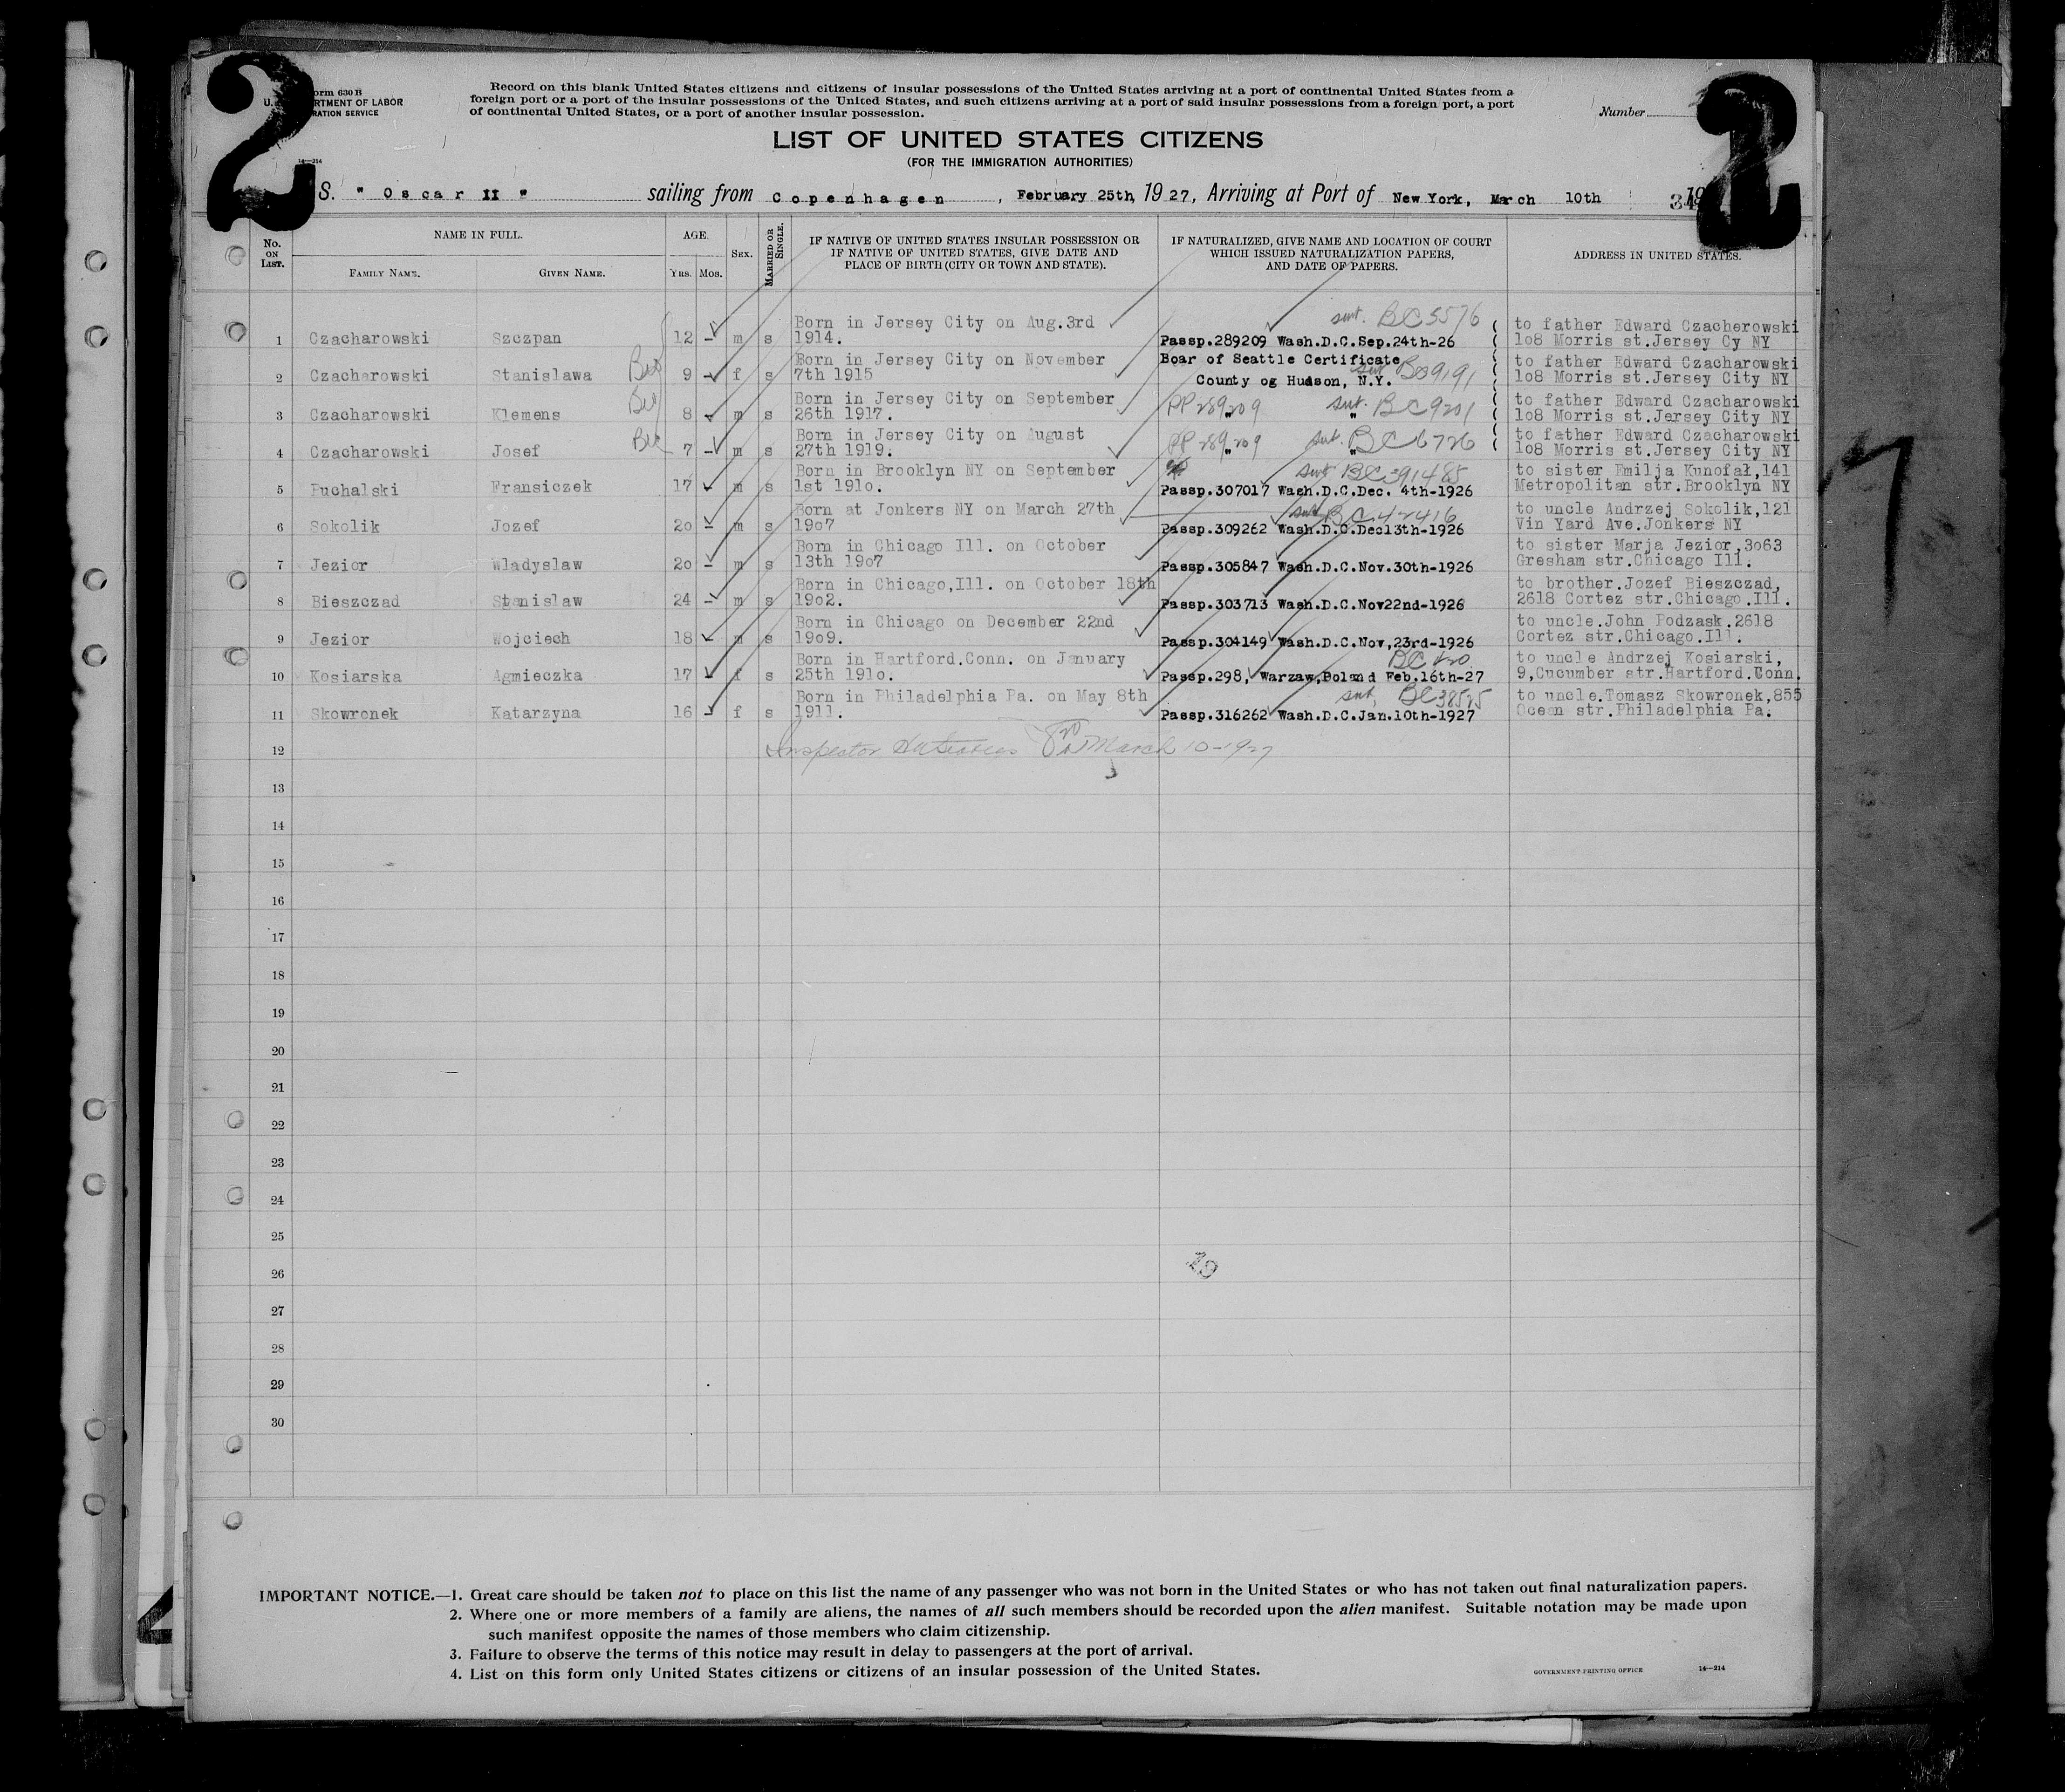 2
2
orm 630 B
U.
RTMENT OF LABOR
RATION SERVICE
14—214
Record on this blank United States citizens and citizens of insular possessions of the United States arriving at a port of continental United States from a
foreign port or a port of the insular possessions of the United States, and such citizens arriving at a port of said insular possessions from a foreign port, a port
of continental United States, or a port of another insular possession.
Number
LIST OF UNITED STATES CITIZENS
(FOR THE IMMIGRATION AUTHORITIES)
S. " Oscar II " sailing from Copenhagen , February 25th, 1927, Arriving at Port of New York, March 10th 19
No. ON LIST.
NAME IN FULL.
FAMILY NAME. GIVEN NAME.
AGE.
YRS. MOS.
SEX.
MARRIED OR SINGLE.
IF NATIVE OF UNITED STATES INSULAR POSSESSION OR
IF NATIVE OF UNITED STATES, GIVE DATE AND
PLACE OF BIRTH (CITY OR TOWN AND STATE).
IF NATURALIZED, GIVE NAME AND LOCATION OF COURT
WHICH ISSUED NATURALIZATION PAPERS,
AND DATE OF PAPERS.
ADDRESS IN UNITED STATES.
Born in Jersey City on Aug.3rd BC 5576 to father Edward Czacherowski
1 Czacharowski Szczpan 12 – m s 1914. Passp.289209 Wash.D.C.Sep.24th-26 lo8 Morris st.Jersey Cy NY
Born in Jersey City on November Boar of Seattle Certificate to father Edward Czacharowski
2 Czacharowski Stanislawa 9 – f s 7th 1915 County og Hudson, N.Y. 9191 lo8 Morris st.Jersey City NY
Born in Jersey City on September to father Edward Czacharowski
3 Czacharowski Klemens 8 – m s 26th 1917. PP 289209 " BC 9201 lo8 Morris st.Jersey City NY
Born in Jersey City on August to father Edward Czacharowski
4 Czacharowski Josef 7 – m s 27th 1919. PP 289209 " BC 6726 lo8 Morris st.Jersey City NY
Born in Brooklyn NY on September BC 391485 to sister Emilja Kunofał,141
5 Puchalski Fransiczek 17 – m s 1st 191o. Passp.307017 Wash.D.C.Dec. 4th-1926 Metropolitan str.Brooklyn NY
Born at Jonkers NY on March 27th BC 42416 to uncle Andrzej Sokolik,121
6 Sokolik Jozef 2o – m s 19o7 Passp.309262 Wash.D.C.Dec13th-1926 Vin Yard Ave.Jonkers NY
Born in Chicago Ill. on October to sister Marja Jezior,3o63
7 Jezior Wladyslaw 2o – m s 13th 19o7 Passp.305847 Wash.D.C.Nov.30th-1926 Gresham str.Chicago Ill.
Born in Chicago,Ill. on October 18th to brother.Jozef Bieszczad,
8 Bieszczad Stanislaw 24 – m s 19o2. Passp.303713 Wash.D.C.Nov22nd-1926 2618 Cortez str.Chicago.Ill.
Born in Chicago on December 22nd to uncle.John Podzask.2618
9 Jezior Wojciech 18 – m s 19o9. Passp.304149 Wash.D.C.Nov,23rd-1926 Cortez str.Chicago.Ill.
Born in Hartford.Conn. on January BC to uncle Andrzej Kosiarski,
10 Kosiarska Agmieczka 17 – f s 25th 191o. Passp.298, Warzaw,Poland Feb.16th-27 9,Cucumber str.Hartford.Conn.
Born in Philadelphia Pa. on May 8th BC 38525 to uncle.Tomasz Skowronek,855
11 Skowronek Katarzyna 16 – f s 1911. Passp.316262 Wash.D.C.Jan.10th-1927 Ocean str.Philadelphia Pa.
12 Inspector March 10-1927
13
14
15
16
17
18
19
20
21
22
23
24
25
26
19
27
28
29
30
IMPORTANT NOTICE.—1. Great care should be taken not to place on this list the name of any passenger who was not born in the United States or who has not taken out final naturalization papers.
2. Where one or more members of a family are aliens, the names of all such members should be recorded upon the alien manifest. Suitable notation may be made upon
such manifest opposite the names of those members who claim citizenship.
3. Failure to observe the terms of this notice may result in delay to passengers at the port of arrival.
4. List on this form only United States citizens or citizens of an insular possession of the United States.
GOVERNMENT PRINTING OFFICE 14—214